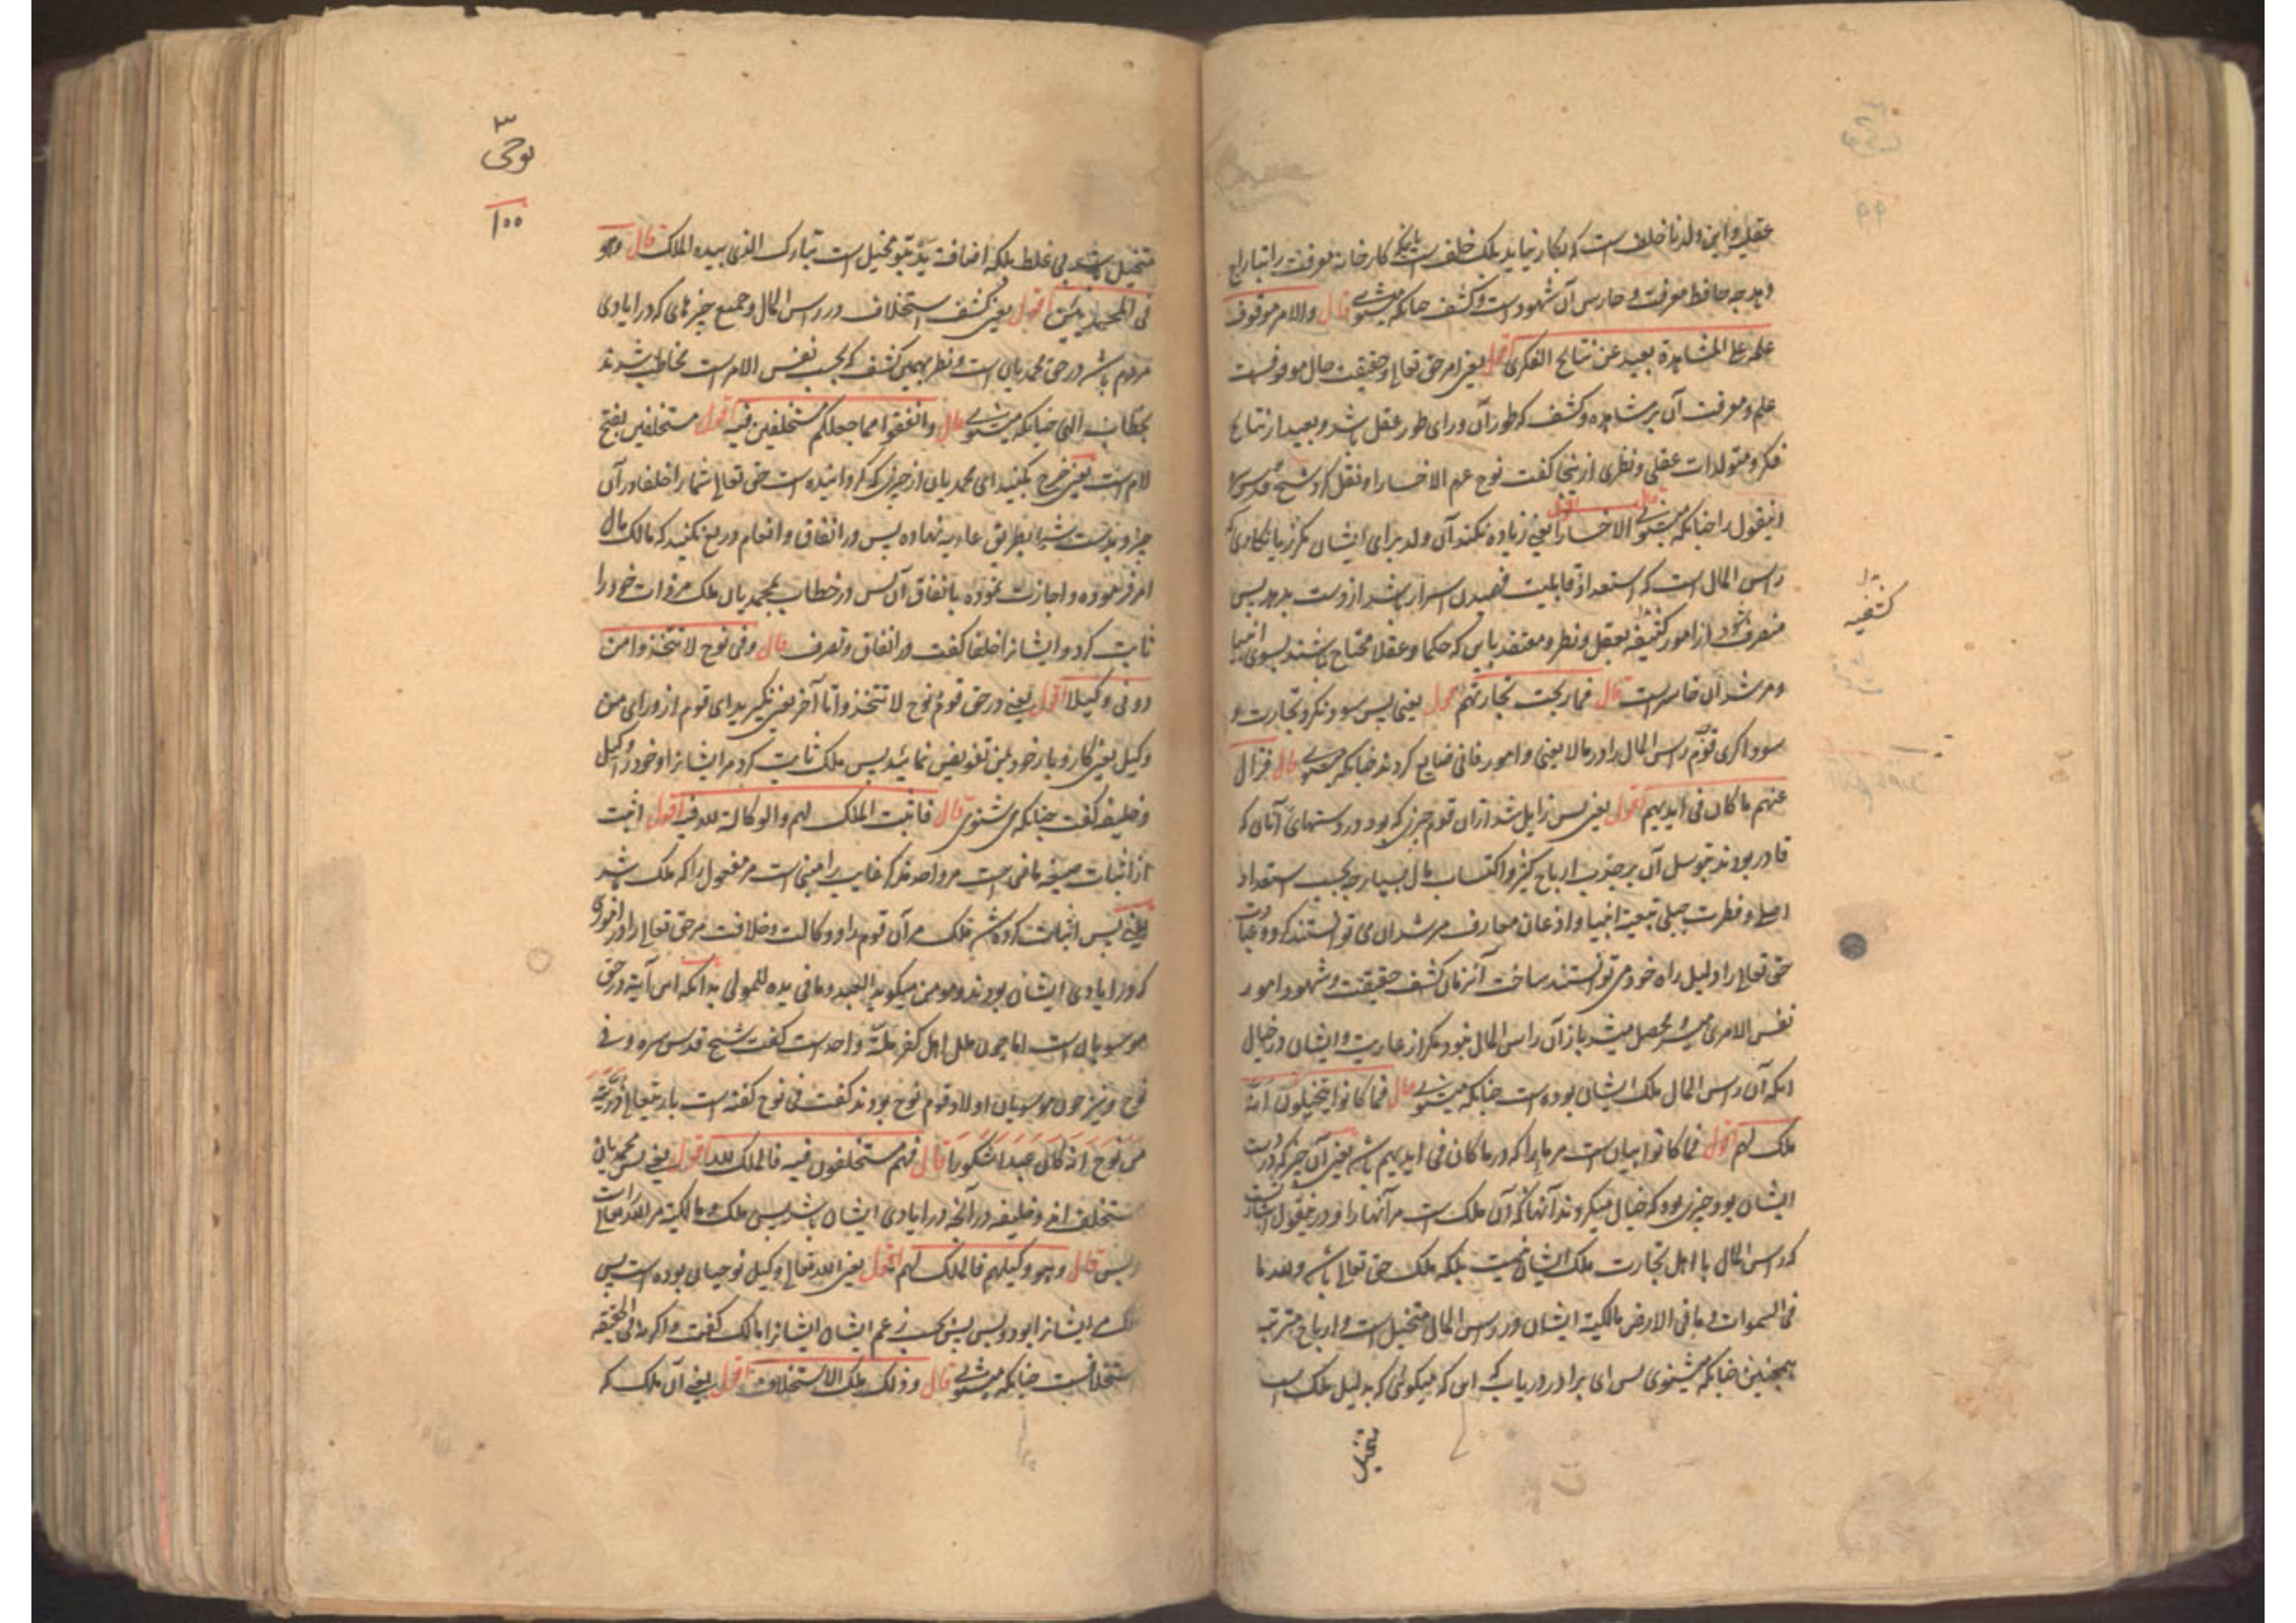 عقلی و این ولد ناخلف است که بکار نیاید بلک خلف است بانکه کارخانه معرفت را تبار
و بدرجه حافظ معرفت و حارس آن شهود است و کشف چنانکه میشنوی قال والامر موقوف
علمه علی المشاهدة بعید عن نتائج الفکر اقول یعنی امر حق تعالی و حقیقت حال موقوفست
علم و معرفت آن بر مشاهده و کشف که طور آن ورای طور عقل باشد و بعید از نتایج
فکر و متولدات عقلی و نظری ازینجا گفت نوح عم الا خسارا و نقل کرد شیخ قدس سره
اینقول را چنانکه میشنوی قال الا خسارا اقول یعنی زیاده نکند آن ولد برای ایشان مگر زیانکاری که
راس المال است که استعداد و قابلیت فهمیدن اسرار باشد از دست بدهد پس
منصرف شود از امور کشفیه بعقل و نظر و معتقد باین که حکما و عقلا محتاج باشند بسوی انبیا
و مرشد آن خاسر است قال فما ربحت تجارتهم اقول یعنی پس سود نکرد تجارت و
سوداگری قوم راس المال را در مالا یعنی و امور فانی ضایع کردند چنانکه میشنوی قال فزال
عنهم ما کان فی ایدیهم اقول یعنی پس زایل شد از آن قوم چیزی که بود در دستهای آنان که
قادر بودند بتوسل آن بر جذب ارباح کثیر و اکتساب مال بسیار چه بحسب استعداد
اصلی و فطرت جبلی تبعیة انبیا و اذعان معارف مرشدان می توانستند کرد و عبادت
حق تعالی را دلیل راه خود می توانستند ساخت آنزمان کشف حقیقت و شهود امور
نفس الامری میسر و محصل میشد باز آن راس المال نبود مگر از عاریت و ایشان در خیال
انکه آن راس المال ملک ایشان بوده است چنانکه میشنوی قال فما کانوا یتخیلون انه
ملک لهم اقول فما کانوا بیان است مر ما را که در ما کان فی ایدیهم باشد یعنی آن چیز که در دست
ایشان بود چیزی بود که خیال میکردند آنها که آن ملک است مر آنها را و درین قول اشارت است
که راس المال با اهل تجارت ملک ایشان نیست بلکه ملک حق تعالی باشد و لله ما
فی السموات و ما فی الارض مالکیة ایشان در راس المال متخیل است و ارباح مترتب
همچنین چنانکه میشنوی پس ای برادر دریاب که این که میگوئی که بدلیل ملک است
متخیل
کشفیه
نوحی
۱۰۰
متخیل باشد بی غلط بلکه اضافت ید بتو متخیل است تبارک الذی بیده الملک قال وهو
فی المحمدیین اقول یعنی کشف استخلاف در راس المال و جمیع چیزهای که در ایادی
مردم باشد در حق محمدیان است و نظر بهمین کشف که بحسب نفس الامر است مخاطب شدند
بخطاب الهی چنانکه میشنوی قال وانفقوا مما جعلکم مستخلفین فیه اقول مستخلفین بفتح
لام است یعنی خرج بکنید ای محمدیان از چیزی که گردانیده است حق تعالی شما را خلفا در آن
چیز و بدست شما بطریق عاریه نهاده پس در انفاق و انعام دریغ نکنید که مالک مال
امر فرموده و اجازت نموده بانفاق آن پس در خطاب بمحمدیان ملک مر ذات خود را
ثابت کرد و ایشانرا خلفا گفت در انفاق و تصرف قال وفی نوح لا تتخذوا من
دونی وکیلا اقول یعنی در حق قوم نوح لا تتخذوا تا آخر یعنی نگیرید ای قوم از ورای من
وکیل یعنی کار و بار خود بمن تفویض نمائید پس ملک ثابت کرد مر ایشانرا و خود را وکیل
و خلیفه گفت چنانکه می شنوی قال فاثبت الملک لهم والوکالة لله فیه اقول اثبت
از اثبات صیغه ماضی است مر واحد مذکر غایب را مبنی است مر مفعول را که ملک باشد
یعنی پس اثبات کرده شد ملک مر آن قوم را و وکالت و خلافت مر حق تعالی را در اموری
که در ایادی ایشان بودند و مومن میگوید العبد وما فی یده للمولی بدانکه این آیة در حق
موسویان است اما چون ملل اهل کفر ملة واحد است گفت شیخ قدس سره وفی
نوح و نیز چون موسویان اولاد قوم نوح بودند گفت فی نوح گفته است باریتعالی ذریة
من نوح انه کان عبدا شکورا قال فهم مستخلفون فیه فالملک لله اقول یعنی پس محمدیان
مستخلف اند و خلیفه در آنچه در ایادی ایشان باشد پس ملک و مالکیة مر الله راست تعالی
و بس قال وهو وکیلهم فالملک لهم اقول یعنی الله تعالی وکیل نوحیان بوده است پس
ملک مر ایشانرا بود و بس بحسب زعم ایشان ایشانرا مالک گفت و اگر نه فی الحقیقه
استخلافست چنانکه میشنوی قال وذلک ملک الاستخلاف اقول یعنی آن ملک که